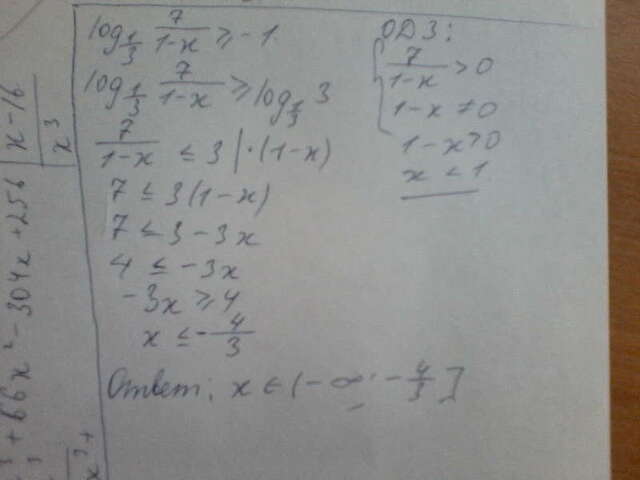 log_{1/3} 7/(1-x) ≥ -1
log_{1/3} 7/(1-x) ≥ log_{1/3} 3
7/(1-x) ≤ 3 | ·(1-x)
7 ≤ 3(1-x)
7 ≤ 3-3x
4 ≤ -3x
-3x ≥ 4
x ≤ -4/3
Ответ: x ∈ (-∞; -4/3]
ОДЗ:
7/(1-x) > 0
1-x ≠ 0
1-x > 0
x < 1
+66x²-304x+256 | x-16
x³